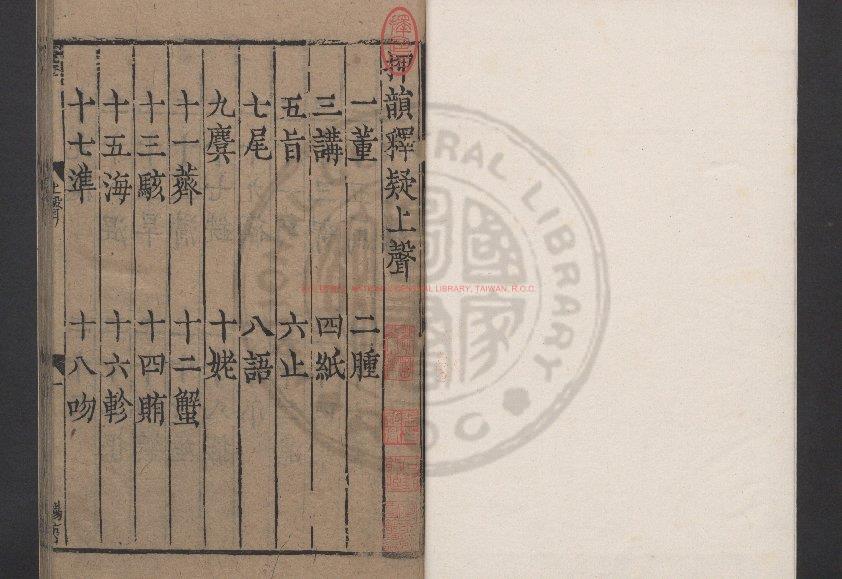 押韻釋疑上聲
一董 二腫
三講 四紙
五旨 六止
七尾 八語
九麌 十姥
十一薺 十二蟹
十三駭 十四賄
十五海 十六軫
十七準 十八吻
上聲
一
NATIONAL CENTRAL LIBRARY, TAIWAN, R.O.C.